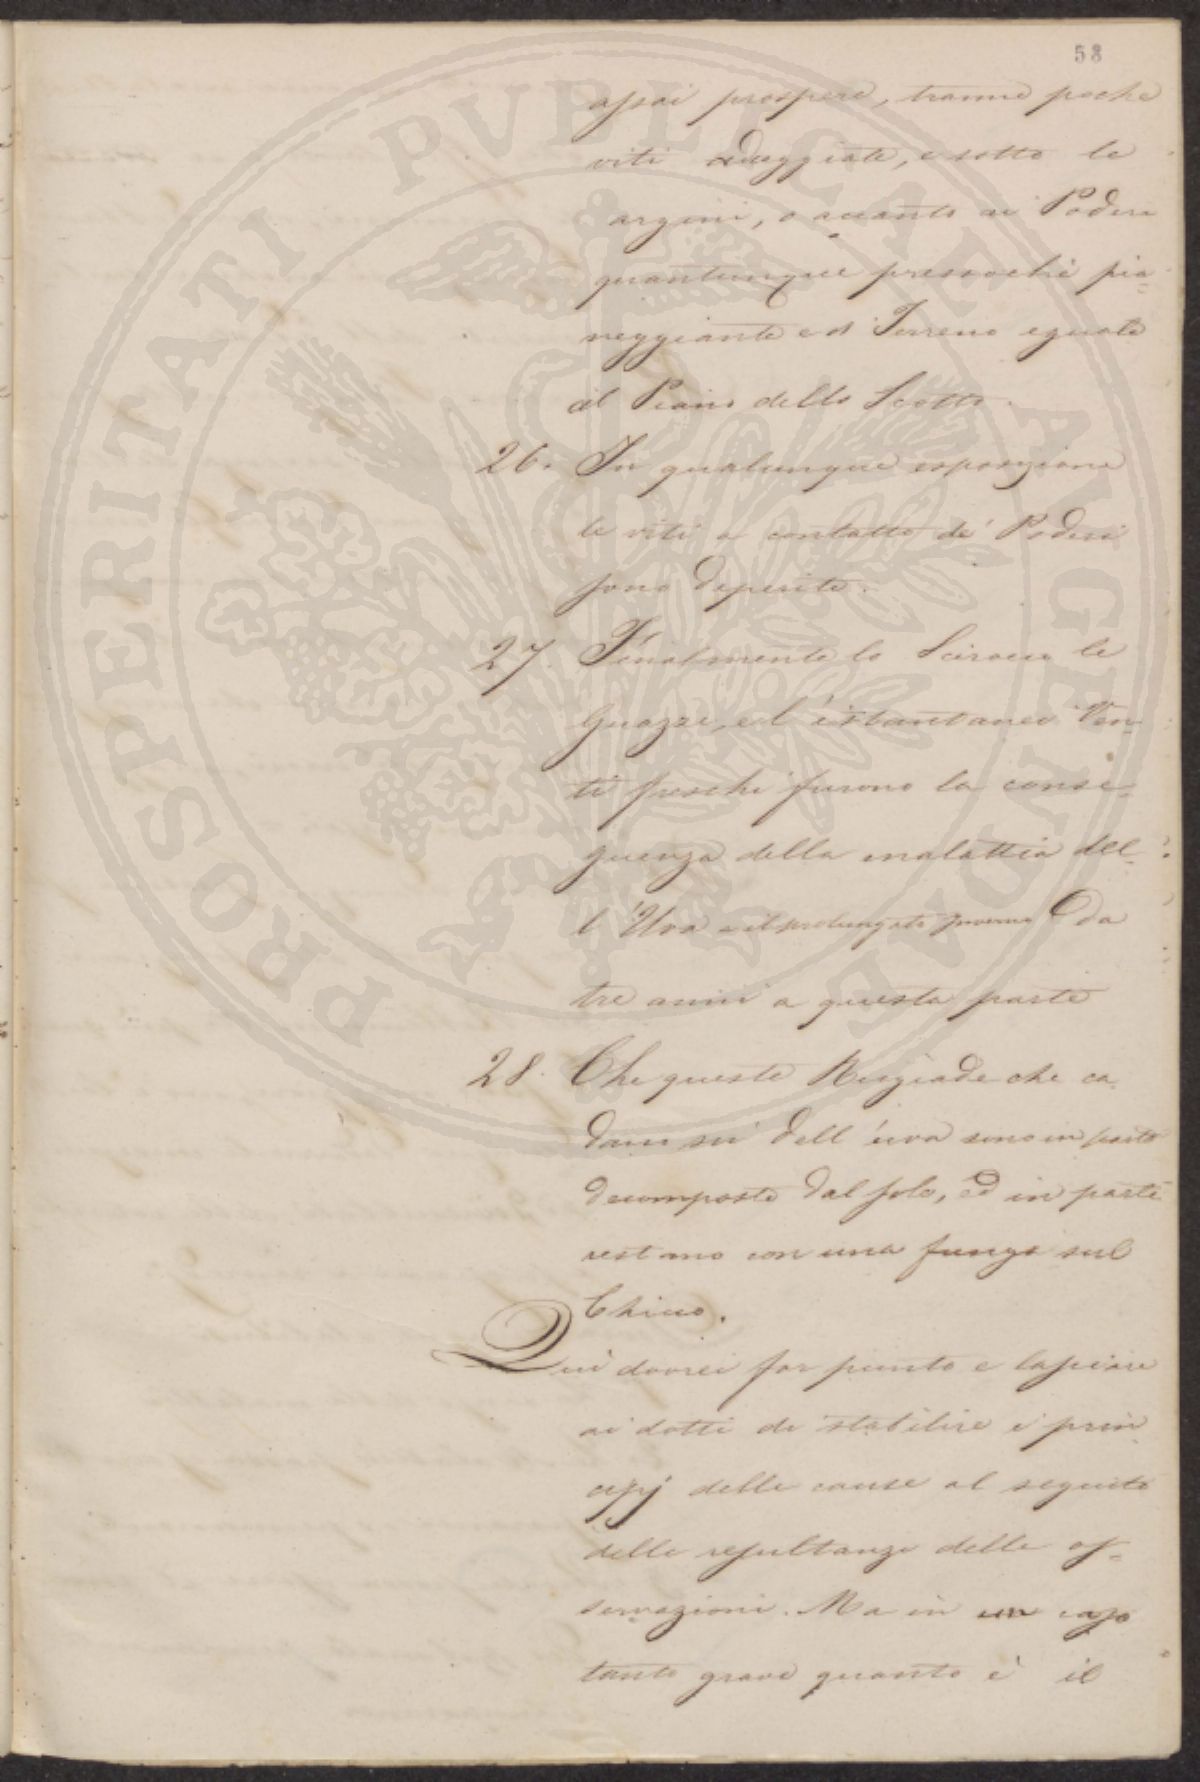 58
assai prospere, tranne poche
viti aduggiate, e sotto le
argini, o accanto ai Poderi
quantunque pressochè pia-
neggiante ed Terreno eguale
al Piano dello Scotto.
26. In qualunque esposizione
le viti a contatto de' Poderi
sono deperite.
27. Finalmente lo Scirocco le
Guazze, ed l'istantanei Ven-
ti freschi furono la conse-
guenza della malattia del-
l'Uva e il prolungato Inverno da
tre anni a questa parte
28. Che queste Rugiade che ca
dano su' dell'uva sono in parte
decomposte dal sole, ed in parte
restano con una fungo sul
Chicco.
Qui dovrei far punto e lasciare
ai dotti di stabilire i prin
cipj delle cause al seguito
delle resultanze delle os-
servazioni. Ma in un caso
tanto grave quanto è il
PROSPERITATI PVBLICAE AVGENDAE